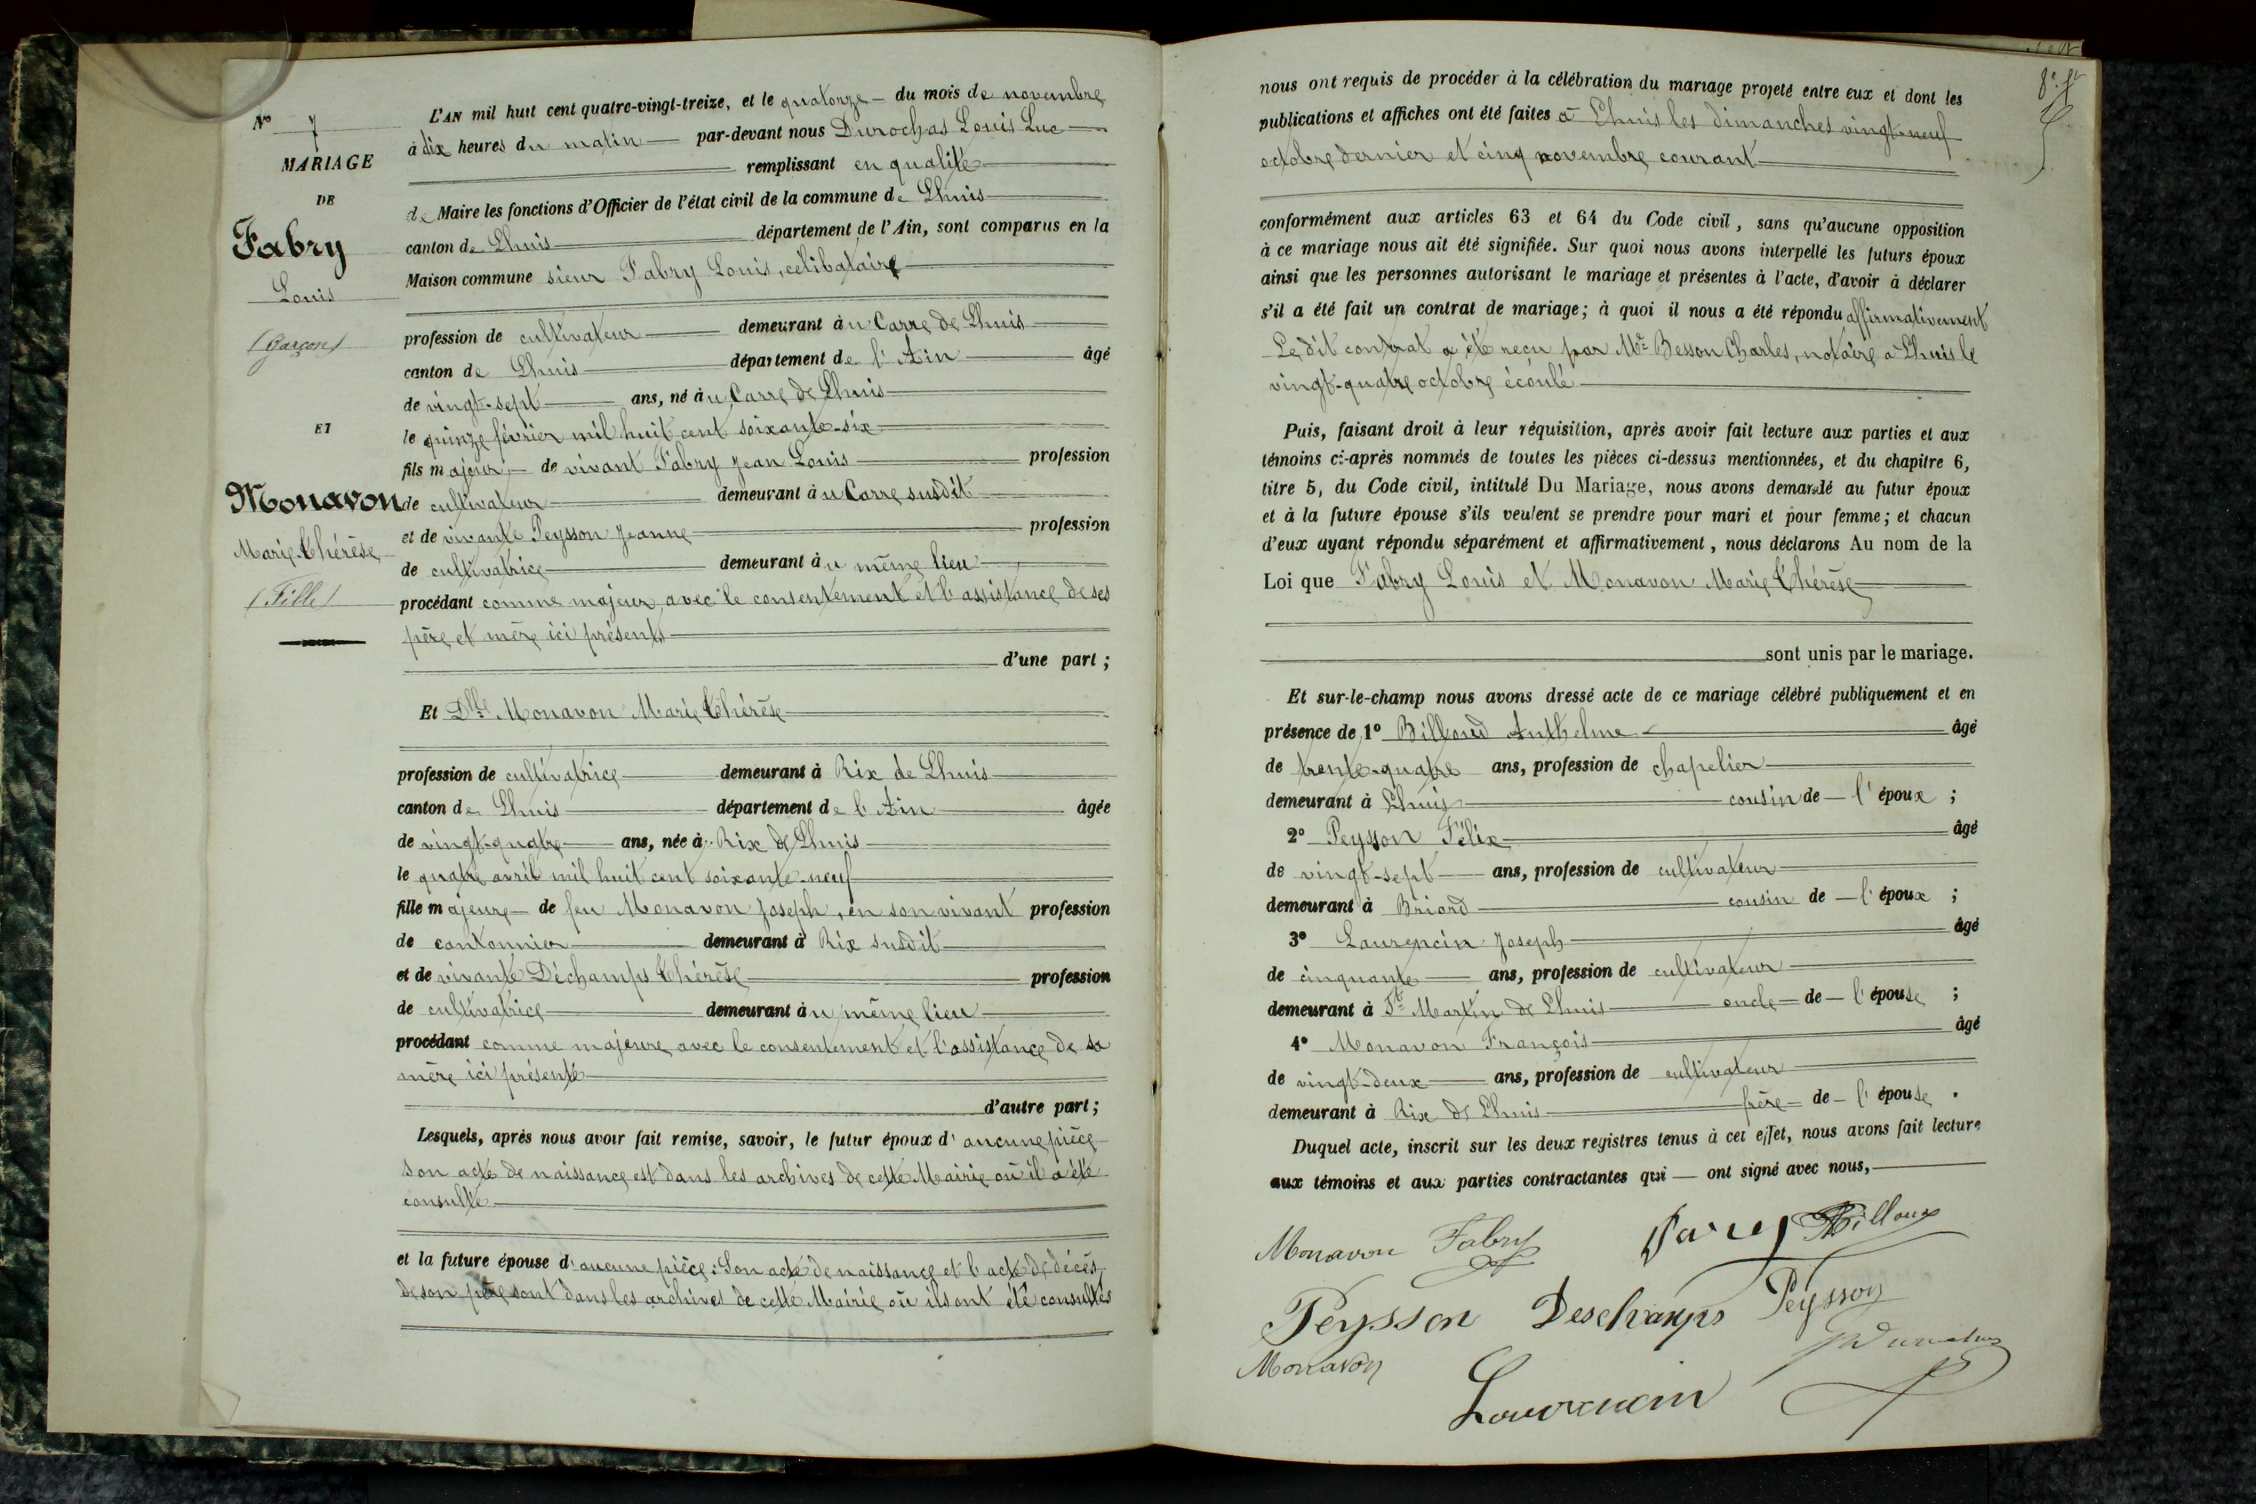 N° 7
MARIAGE
DE
Fabry
Louis
(Garçon)
ET
Monavon
Marie Thérèse
(Fille)
L'AN mil huit cent quatre-vingt-treize, et le quatorze du mois de novembre
à dix heures du matin par-devant nous Durochas Louis Luc
remplissant en qualité
de Maire les fonctions d'Officier de l'état civil de la commune de Lhuis
canton de Lhuis département de l'Ain, sont comparus en la
Maison commune sieur Fabry Louis, célibataire
profession de cultivateur demeurant au Carre de Lhuis
canton de Lhuis département de l'Ain âgé
de vingt-sept ans, né au Carre de Lhuis
le quinze février mil huit cent soixante-six
fils majeur de vivant Fabry Jean Louis profession
de cultivateur demeurant au Carre susdit
et de vivante Peysson Jeanne profession
de cultivatrice demeurant au même lieu
procédant comme majeur, avec le consentement et l'assistance de ses
père et mère ici présents
d'une part ;
Et Dlle Monavon Marie Thérèse
profession de cultivatrice demeurant à Rix de Lhuis
canton de Lhuis département de l'Ain âgée
de vingt-quatre ans, née à Rix de Lhuis
le quatre avril mil huit cent soixante-neuf
fille majeure de feu Monavon Joseph, en son vivant profession
de cantonnier demeurant à Rix susdit
et de vivante Déchamps Thérèse profession
de cultivatrice demeurant au même lieu
procédant comme majeure, avec le consentement et l'assistance de sa
mère ici présente
d'autre part ;
Lesquels, après nous avoir fait remise, savoir, le futur époux d'aucune pièce
Son acte de naissance est dans les archives de cette Mairie où il a été
consulté
et la future épouse d'aucune pièce : Son acte de naissance et l'acte de décès
de son père sont dans les archives de cette Mairie où ils ont été consultés
nous ont requis de procéder à la célébration du mariage projeté entre eux et dont les
publications et affiches ont été faites à Lhuis les dimanches vingt-neuf
octobre dernier et cinq novembre courant
conformément aux articles 63 et 64 du Code civil, sans qu'aucune opposition
à ce mariage nous ait été signifiée. Sur quoi nous avons interpellé les futurs époux
ainsi que les personnes autorisant le mariage et présentes à l'acte, d'avoir à déclarer
s'il a été fait un contrat de mariage ; à quoi il nous a été répondu affirmativement
Le dit contrat a été reçu par Me Besson Charles, notaire à Lhuis le
vingt-quatre octobre écoulé
Puis, faisant droit à leur réquisition, après avoir fait lecture aux parties et aux
témoins ci-après nommés de toutes les pièces ci-dessus mentionnées, et du chapitre 6,
titre 5, du Code civil, intitulé Du Mariage, nous avons demandé au futur époux
et à la future épouse s'ils veulent se prendre pour mari et pour femme ; et chacun
d'eux ayant répondu séparément et affirmativement, nous déclarons Au nom de la
Loi que Fabry Louis et Monavon Marie Thérèse
sont unis par le mariage.
Et sur-le-champ nous avons dressé acte de ce mariage célébré publiquement et en
présence de 1° Billoud Anthelme âgé
de trente-quatre ans, profession de chapelier
demeurant à Lhuis cousin de l'époux ;
2° Peysson Félix âgé
de vingt-sept ans, profession de cultivateur
demeurant à Briord cousin de l'époux ;
3° Laurencin Joseph âgé
de cinquante ans, profession de cultivateur
demeurant à St Martin de Lhuis oncle de l'épouse ;
4° Monavon François âgé
de vingt-deux ans, profession de cultivateur
demeurant à Rix de Lhuis frère de l'épouse.
Duquel acte, inscrit sur les deux registres tenus à cet effet, nous avons fait lecture
aux témoins et aux parties contractantes qui ont signé avec nous,
Monavon Fabry Billoux
Peysson Deschamps Peysson
Monavon